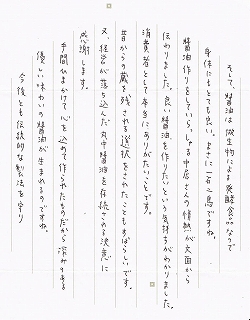 そして、醤油は微生物による発酵食品なので
身体にもとても良い。まさに一石二鳥ですね。
醤油作りをしていらっしゃる中居さんの情熱が文面から
伝わりました。良い醤油を作りたいという気持ちがわかりました。
消費者として本当にありがたいことです。
昔からの蔵を残される選択をされたこともすばらしいです。
又、経営が落ち込んだ丸中醤油を存続される決意に
感謝します。
手間ひまかけて心を込めて作られたものだから深みのある
優しい味わいの醤油が生まれるのですね。
今後とも伝統的な製法を守り